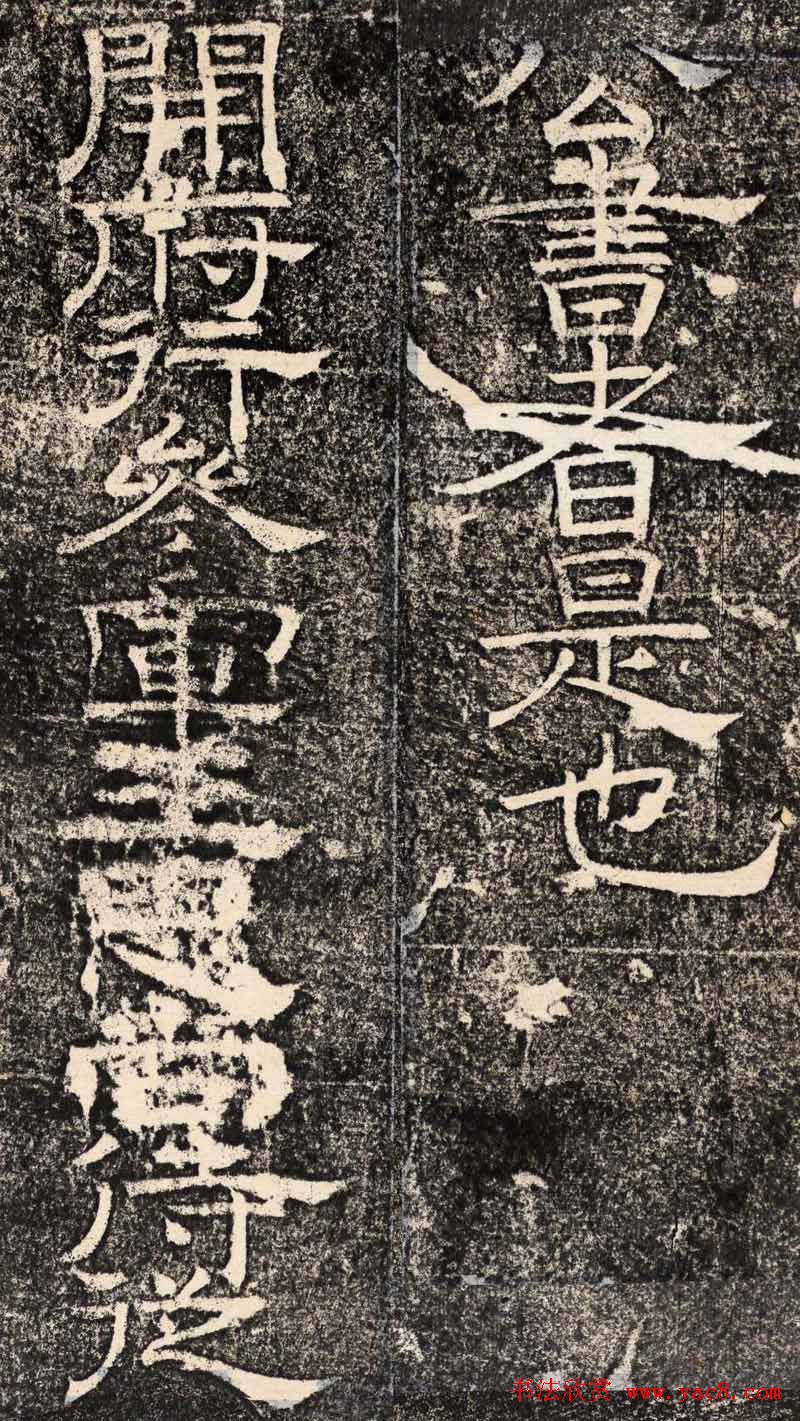 公書者是也
開府行參軍王待從
书法欣赏 www.yac8.com